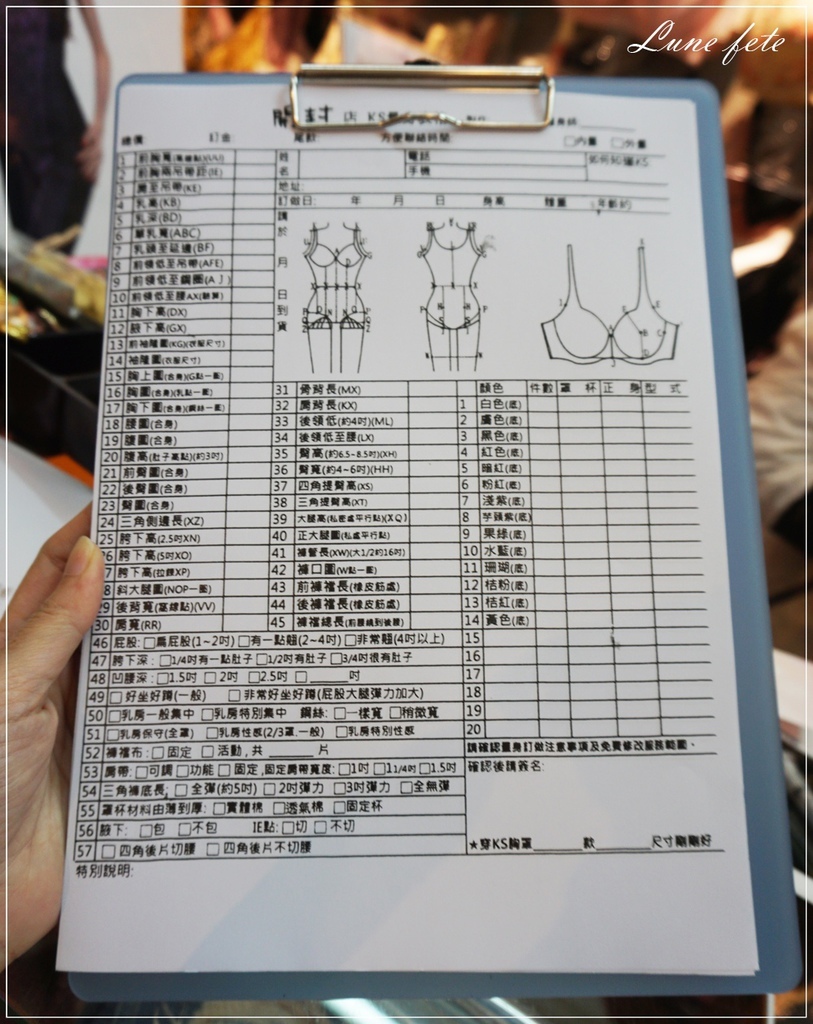 Lune fete
開封 店 KS
總價 訂金 尾款 方便聯絡時間 □內量 □外量
姓名 電話 手機 如何知道KS
地址:
訂做日: 年 月 日 身高 體重
請於 月 日到貨
1 前胸寬
2 前胸兩吊帶距(IE)
3 肩至吊帶(KE)
4 乳高(KB)
5 乳深(BD)
6 單乳寬(ABC)
7 乳頭至延邊(BF)
8 前領低至吊帶(AFE)
9 前領低至鋼圈(AJ)
10 前領低至腰AX
11 胸下高(DX)
12 腋下高(GX)
13 前袖隆圍(KG)(衣服尺寸)
14 袖隆圍(衣服尺寸)
15 胸上圍(合身)(G點一圈)
16 胸圍(合身)(乳點一圈)
17 胸下圍(合身)(鋼絲一圈)
18 腰圍(合身)
19 腹圍(合身)
20 腹高(肚子高點)(約3吋)
21 前臀圍(合身)
22 後臀圍(合身)
23 臀圍(合身)
24 三角側邊長(XZ)
25 胯下高(2.5吋XN)
26 胯下高(5吋XO)
27 胯下高(拉鍊XP)
28 斜大腿圍(NOP一圈)
29 後背寬(高線點)(VV)
30 肩寬(RR)
31 背長(MX)
32 肩背長(KX)
33 後領低(約4吋)(ML)
34 後領低至腰(LX)
35 臀高(約6.5~8.5吋)(XH)
36 臀寬(約4~6吋)(HH)
37 四角提臀高(XS)
38 三角提臀高(XT)
39 大腿高(私密處平行點)(XQ)
40 正大腿圍(私處平行點)
41 褲管長(XW)(大1/2約16吋)
42 褲口圍(W點一圈)
43 前褲襠長(橡皮筋處)
44 後褲襠長(橡皮筋處)
45 褲襠總長(前腰繞到後腰)
顏色 件數 罩杯 正身 型式
1 白色(底)
2 膚色(底)
3 黑色(底)
4 紅色(底)
5 暗紅(底)
6 粉紅(底)
7 淺紫(底)
8 芋頭紫(底)
9 果綠(底)
10 水藍(底)
11 珊瑚(底)
12 桔粉(底)
13 桔紅(底)
14 黃色(底)
15
16
17
18
19
20
46 屁股: □扁屁股(1~2吋) □有一點翹(2~4吋) □非常翹(4吋以上)
47 胯下深: □1/4吋有一點肚子 □1/2吋有肚子 □3/4吋很有肚子
48 凹腰深: □1.5吋 □2吋 □2.5吋 □______吋
49 □好坐好蹲(一般) □非常好坐好蹲(屁股大腿彈力加大)
50 □乳房一般集中 □乳房特別集中 鋼絲: □一樣寬 □稍微寬
51 □乳房保守(全罩) □乳房性感(2/3罩.一般) □乳房特別性感
52 褲襠布: □固定 □活動,共______片
53 肩帶: □可調 □功能 □固定,固定肩帶寬度: □1吋 □1 1/4吋 □1.5吋
54 三角褲底長: □全彈(約5吋) □2吋彈力 □3吋彈力 □全無彈
55 罩杯材料由薄到厚: □實體棉 □透氣棉 □固定杯
56 腋下: □包 □不包 IE點: □切 □不切
57 □四角後片切腰 □四角後片不切腰
請確認量身訂做注意事項及免費修改服務範圍。
確認後請簽名:
★穿KS胸罩______款______尺寸剛剛好
特別說明: